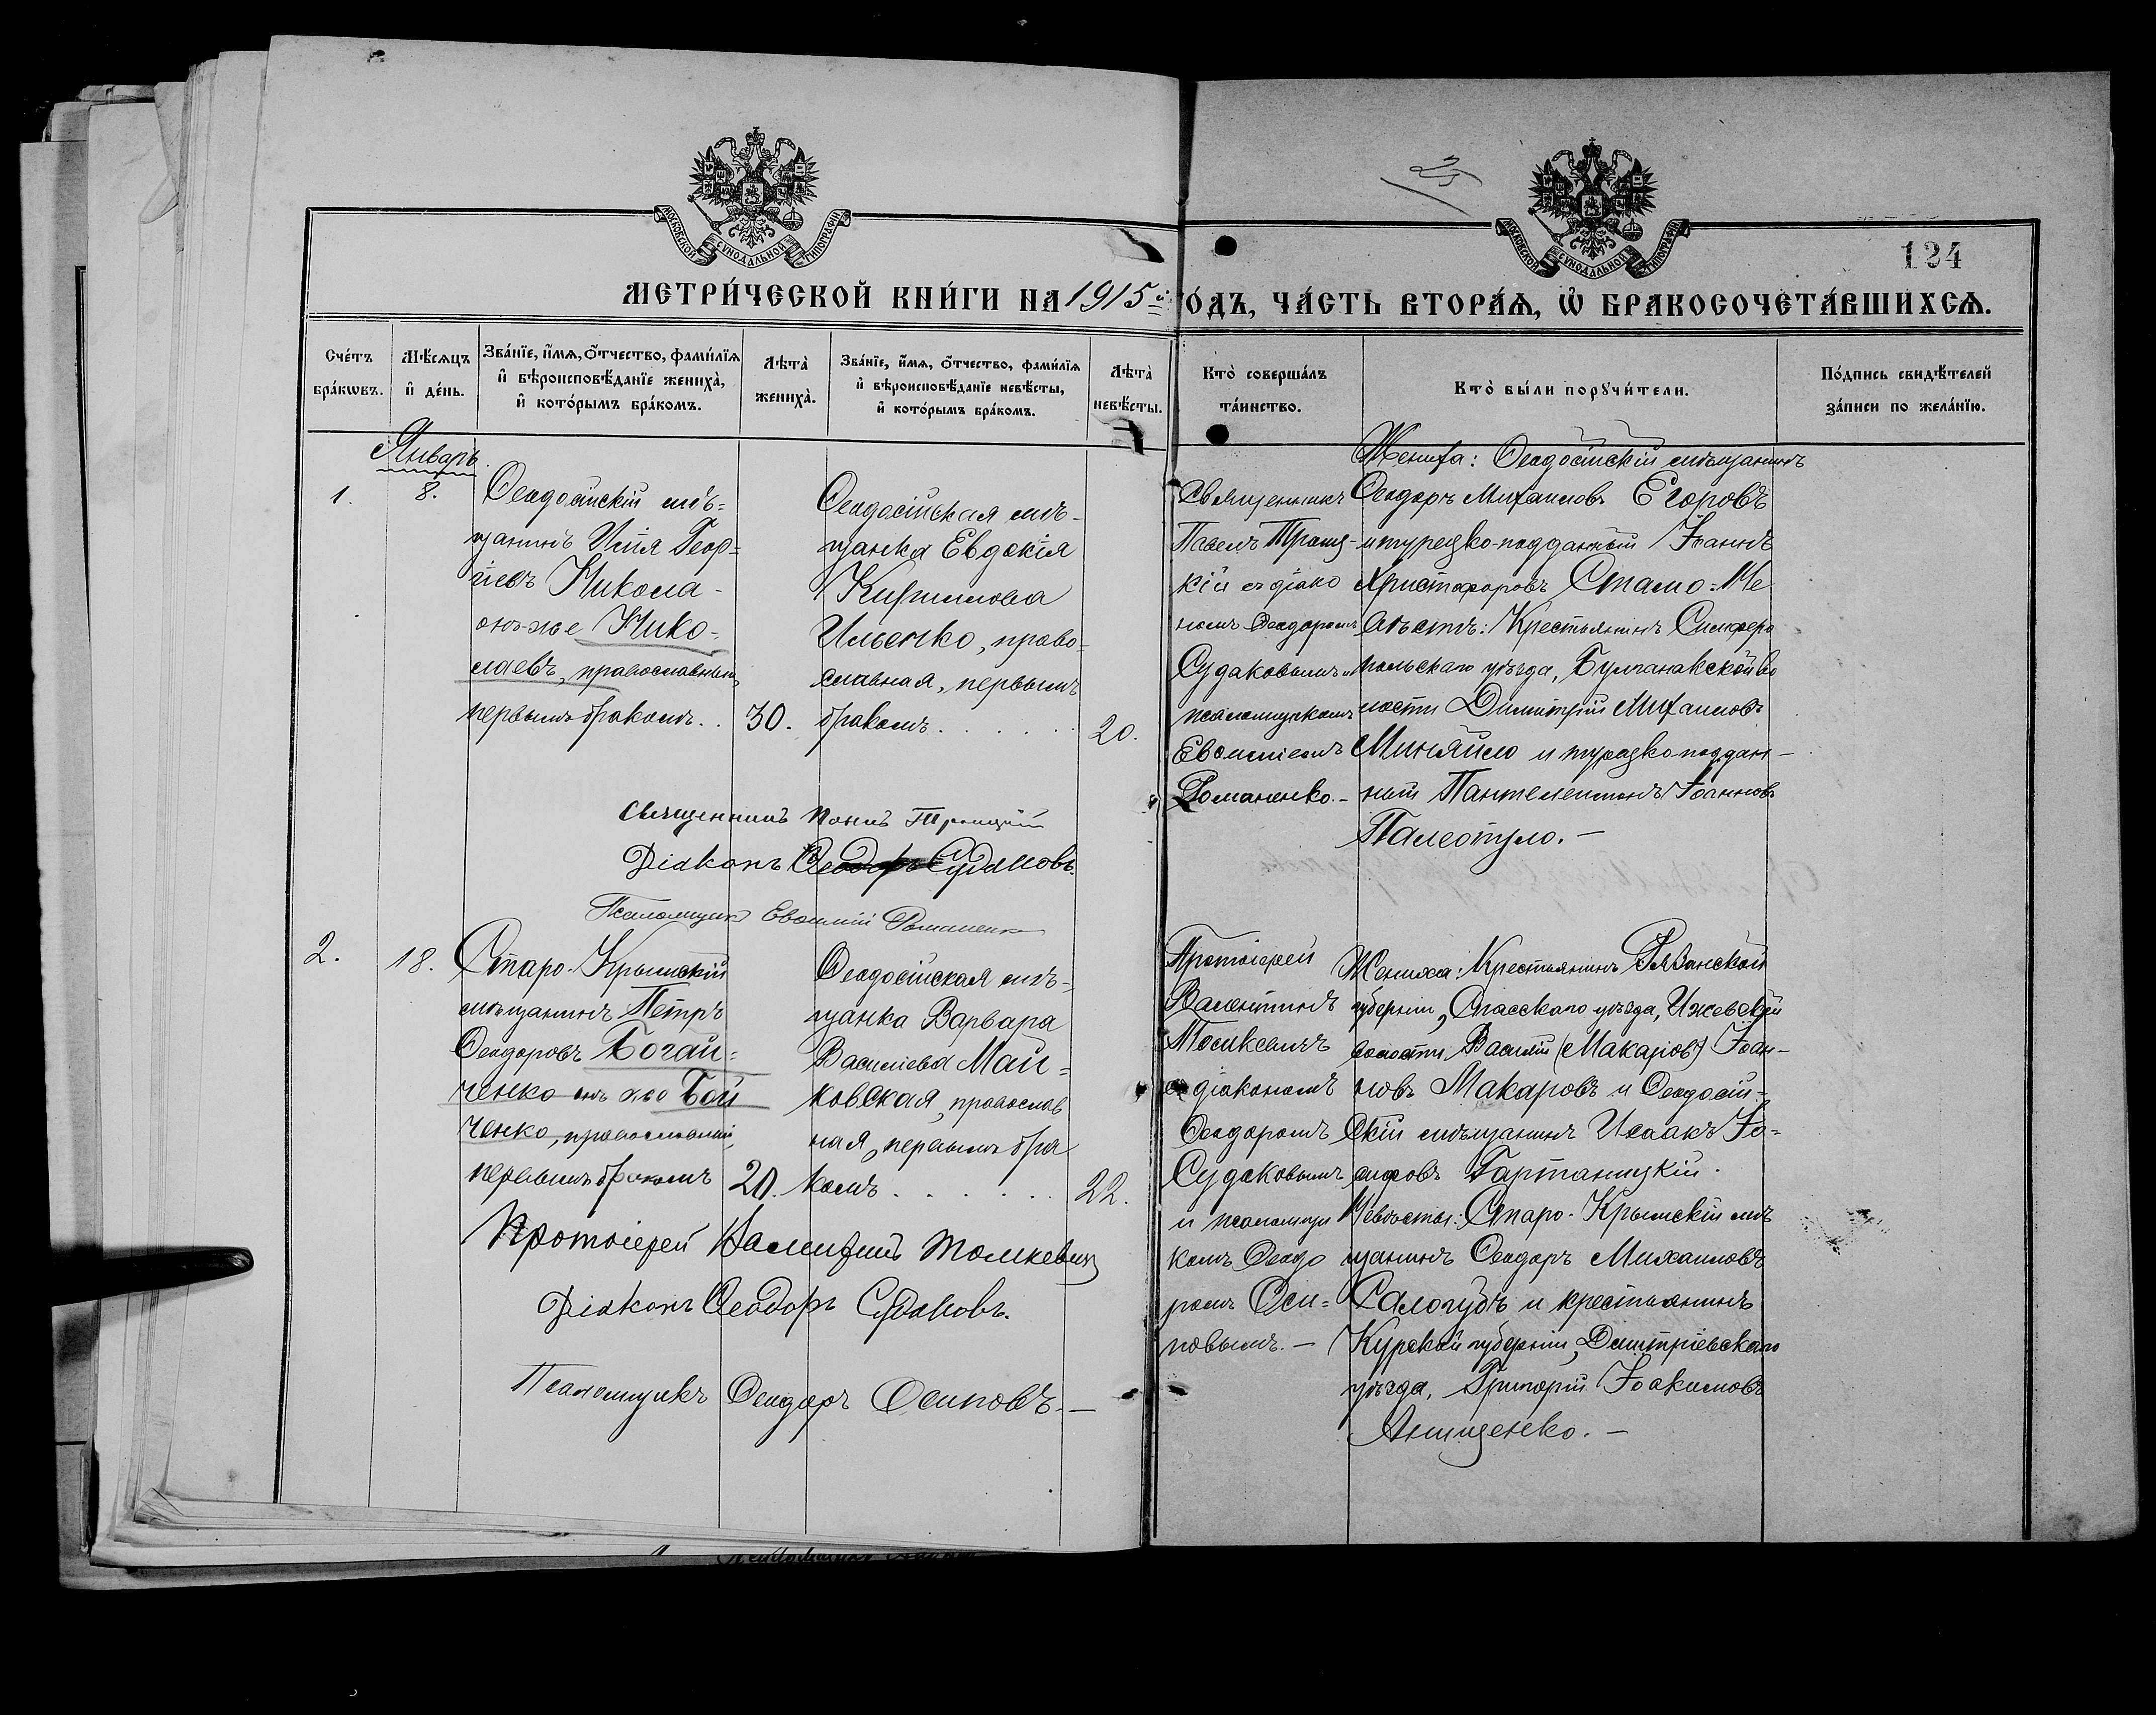 25
124
МОСКОВСКОЙ СѴНОДАЛЬНОЙ ТИПОГРАФІИ
МОСКОВСКОЙ СѴНОДАЛЬНОЙ ТИПОГРАФІИ
МЕТРИ́ЧЕСКОЙ КНИ́ГИ НА 1915й ГО́ДЪ, ЧА́СТЬ ВТОРА́Ѧ, Ѽ БРАКОСОЧЕТА́ВШИХСѦ.
Сче́тъ
бра́кѡвъ.
Мѣ́сѧцъ
и҆ де́нь.
Зва́нїе, и҆́мѧ, ѻ҆́тчество, фами́лїѧ
и҆ вѣроисповѣ́данїе жениха̀,
и҆ кото́рымъ бра́комъ.
Лѣта̀
жениха̀.
Зва́нїе, и҆́мѧ, ѻ҆́тчество, фами́лїѧ
и҆ вѣроисповѣ́данїе невѣ́сты,
и҆ кото́рымъ бра́комъ.
Лѣта̀
невѣ́сты.
Кто̀ соверша́лъ
та́инство.
Кто̀ бы́ли порꙋчи́тели.
По́дпись свидѣ́телей
за́писи по жела́нїю.
Январь.
1.
8.
Ѳеодосійскій мѣ=
щанинъ Илія Геор=
гіевъ Никола-
онъ-же Нико=
лаевъ, православный,
первымъ бракомъ..
30.
Ѳеодосійская мѣ-
щанка Евдокія
Кириллова
Ильенко, право-
славная, первымъ
бракомъ.......
20.
Священникъ
Павелъ Троиц-
кій съ діако
номъ Ѳеодоромъ
Судаковымъ и
псаломщикомъ
Евѳиміемъ
Романенко.-
Жениха: Ѳеодосійскій мѣщанинъ
Ѳеодоръ Михаиловъ Егоровъ
и турецко-подданый Іоаннъ
Христофоровъ Стамо: Не
вѣстѣ: Крестьянинъ Симферо
польскаго уѣзда, Булганакской во
лости Димитрій Михаиловъ
Миняйло и турецко-поддан-
ный Пантелеимонъ Іоанновъ
Палеотуло.-
Священникъ Павелъ Троицкій
Діаконъ Ѳеодоръ Судаковъ.
Псаломщикъ Евѳимій Романенко
2.
18.
Старо-Крымскій
мѣщанинъ Петръ
Ѳеодоровъ Богай=
ченко онъ же Бой
ченко, православный,
первымъ бракомъ
20.
Ѳеодосійская мѣ-
щанка Варвара
Василіева Май=
ковская, православ
ная, первымъ бра
комъ.......
22.
Протоіерей
Валентинъ
Томкевичъ
съ діакономъ
Ѳеодоромъ
Судаковымъ
и псаломщи
комъ Ѳеодо
ромъ Оси=
повымъ.-
Жениха: Крестьянинъ Рязанской
губерніи, Спасскаго уѣзда, Ижевской
волости Василій (Макаріовъ) Іоан-
новъ Макаровъ и Ѳеодосій-
скій мѣщанинъ Исаакъ Іо=
сифовъ Гартаницкій.
Невѣсты: Старо-Крымскій мѣ
щанинъ Ѳеодоръ Михаиловъ
Салогубъ и крестьянинъ
Курской губерніи, Дмитріевскаго
уѣзда, Григорій Іоакимовъ
Анищенко.-
Протоіерей Валентинъ Томкевичъ
Діаконъ Ѳеодоръ Судаковъ.
Псаломщикъ Ѳеодоръ Осиповъ.-